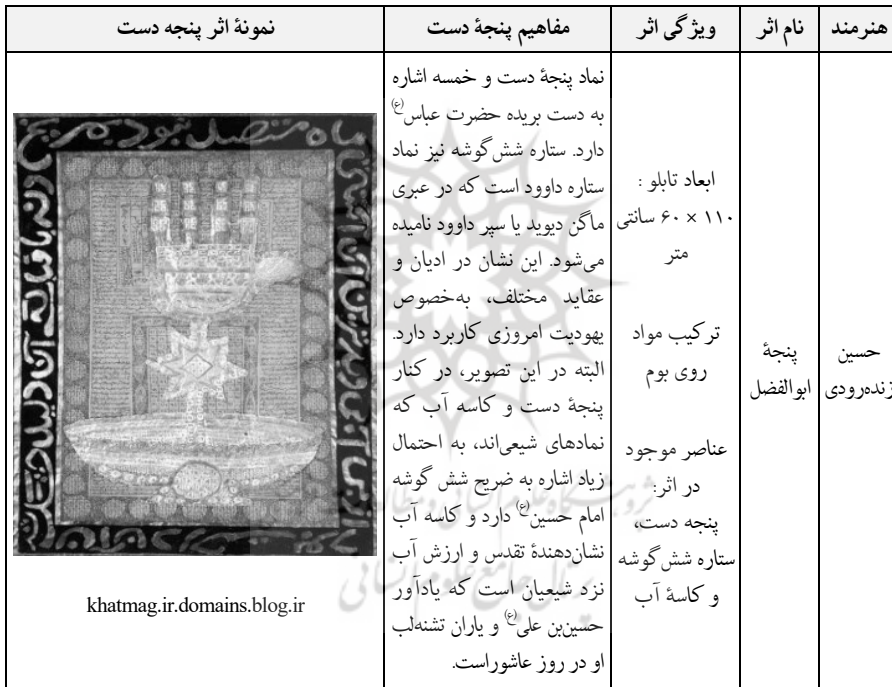 هنرمند
نام اثر
ویژگی اثر
مفاهیم پنجهٔ دست
نمونهٔ اثر پنجه دست
حسین
زنده‌رودی
پنجهٔ
ابوالفضل
ابعاد تابلو :
۱۱۰ × ۶۰ سانتی
متر
ترکیب مواد
روی بوم
عناصر موجود
در اثر:
پنجه دست،
ستاره شش‌گوشه
و کاسهٔ آب
نماد پنجهٔ دست و خمسه اشاره
به دست بریده حضرت عباس(ع)
دارد. ستاره شش‌گوشه نیز نماد
ستاره داوود است که در عبری
ماگن دیوید یا سپر داوود نامیده
می‌شود. این نشان در ادیان و
عقاید مختلف، به‌خصوص
یهودیت امروزی کاربرد دارد.
البته در این تصویر، در کنار
پنجهٔ دست و کاسه آب که
نمادهای شیعی‌اند، به احتمال
زیاد اشاره به ضریح شش گوشه
امام حسین(ع) دارد و کاسه آب
نشان‌دهندهٔ تقدس و ارزش آب
نزد شیعیان است که یادآور
حسین‌بن علی(ع) و یاران تشنه‌لب
او در روز عاشوراست.
khatmag.ir.domains.blog.ir
پژوهشگاه علوم انسانی و مطالعات
پرتال جامع علوم انسانی